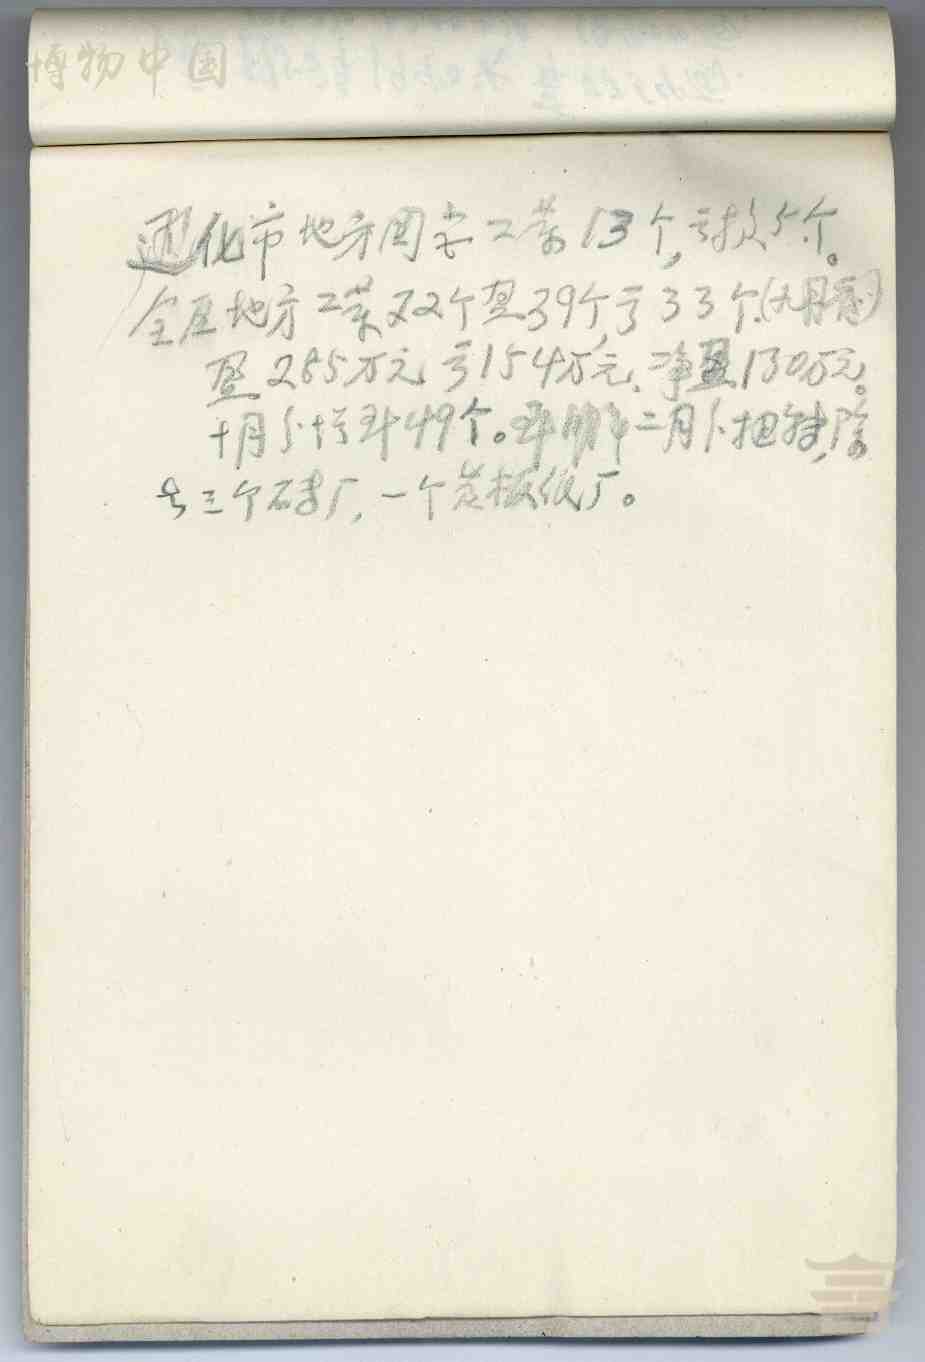 博物中国
通化市地方国营工业13个,亏损5个。
全区地方工业72个盈39个,亏33个(九月前)
盈285万元亏154万元、净盈130万元。
十月份十亏 49个。 二月份扭转,除
去三个砖厂,一个 板纸厂。